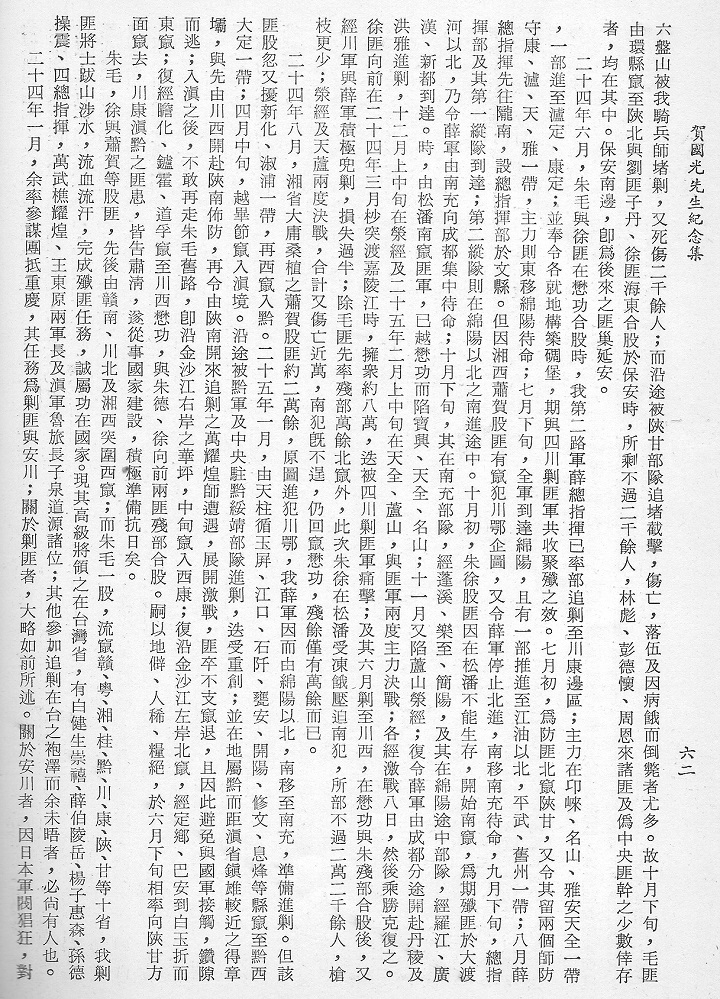 賀國光先生紀念集
六二
六盤山被我騎兵師堵剿，又死傷二千餘人；而沿途被陝甘部隊追堵截擊，傷亡，落伍及因病餓而倒斃者尤多。故十月下旬，毛匪
由環縣竄至陝北與劉匪子丹、徐匪海東合股於保安時，所剩不過二千餘人，林彪、彭德懷、周恩來諸匪及僞中央匪幹之少數倖存
者，均在其中。保安南邊，卽爲後來之匪巢延安。
二十四年六月，朱毛與徐匪在懋功合股時，我第二路軍薛總指揮已率部追剿至川康邊區；主力在邛崍、名山、雅安天全一帶
，一部進至瀘定、康定；並奉令各就地構築碉堡，期與四川剿匪軍共收聚殲之效。七月初，爲防匪北竄陝甘，又令其留兩個師防
守康、瀘、天、雅一帶，主力則東移綿陽待命；七月下旬，全軍到達綿陽，且有一部推進至江油以北，平武、舊州一帶；八月薛
總指揮先往隴南，設總指揮部於文縣。但因湘西蕭賀股匪有竄犯川鄂企圖，又令薛軍停止北進，南移南充待命，九月下旬，總指
揮部及其第一縱隊到達；第二縱隊則在綿陽以北之南進途中。十月初，朱徐股匪因在松潘不能生存，開始南竄，爲期殲匪於大渡
河以北，乃令薛軍由南充向成都集中待命；十月下旬，其在南充部隊，經蓬溪、樂至、簡陽，及其在綿陽途中部隊，經羅江、廣
漢、新都到達。時，由松潘南竄匪軍，已越懋功而陷寶興、天全、名山；十一月又陷蘆山滎經；復令薛軍由成都分途開赴丹稜及
洪雅進剿，十二月上中旬在滎經及二十五年二月上中旬在天全、蘆山，與匪軍兩度主力決戰；各經激戰八日，然後乘勝克復之。
徐匪向前在二十四年三月杪突渡嘉陵江時，擁衆約八萬，迭被四川剿匪軍痛擊；及其六月剿至川西，在懋功與朱殘部合股後，又
經川軍與薛軍積極兜剿，損失過半；除毛匪先率殘部萬餘北竄外，此次朱徐在松潘受凍餓壓迫南犯，所部不過二萬二千餘人，槍
枝更少；滎經及天蘆兩度決戰，合計又傷亡近萬，南犯旣不逞，仍回竄懋功，殘餘僅有萬餘而已。
二十四年八月，湘省大庸桑植之蕭賀股匪約二萬餘，原圖進犯川鄂，我薛軍因而由綿陽以北，南移至南充，準備進剿。但該
匪股忽又擾新化、淑浦一帶，再西竄入黔。二十五年一月，由天柱循玉屏、江口、石阡、甕安、開陽、修文、息烽等縣竄至黔西
大定一帶；四月中旬，越畢節竄入滇境。沿途被黔軍及中央駐黔綏靖部隊進剿，迭受重創；並在地屬黔而距滇省鎮雄較近之得章
壩，與先由川西開赴陝南佈防，再令由陝南開來追剿之萬耀煌師遭遇，展開激戰，匪卒不支竄退，且因此避免與國軍接觸，鑽隙
而逃；入滇之後，不敢再走朱毛舊路，卽沿金沙江右岸之華坪，中甸竄入西康；復沿金沙江左岸北竄，經定鄉、巴安到白玉折而
東竄；復經瞻化、鑪霍、道孚竄至川西懋功，與朱德、徐向前兩匪殘部合股。嗣以地僻、人稀、糧絕，於六月下旬相率向陝甘方
面竄去，川康滇黔之匪患，皆告肅清，遂從事國家建設，積極準備抗日矣。
朱毛，徐與蕭賀等股匪，先後由贛南、川北及湘西突圍西竄；而朱毛一股，流竄贛、粵、湘、桂、黔、川、康、陝、甘等十省，我剿
匪將士跋山涉水，流血流汗，完成殲匪任務，誠屬功在國家。現其高級將領之在台灣省，有白健生崇禧、薛伯陵岳、楊子惠森、孫德
操震、四總指揮，萬武樵耀煌、王東原兩軍長及滇軍魯旅長子泉道源諸位；其他參加追剿在台之袍澤而余未晤者，必尙有人也。
二十四年一月，余率參謀團抵重慶，其任務爲剿匪與安川；關於剿匪者，大略如前所述。關於安川者，因日本軍閥猖狂，對